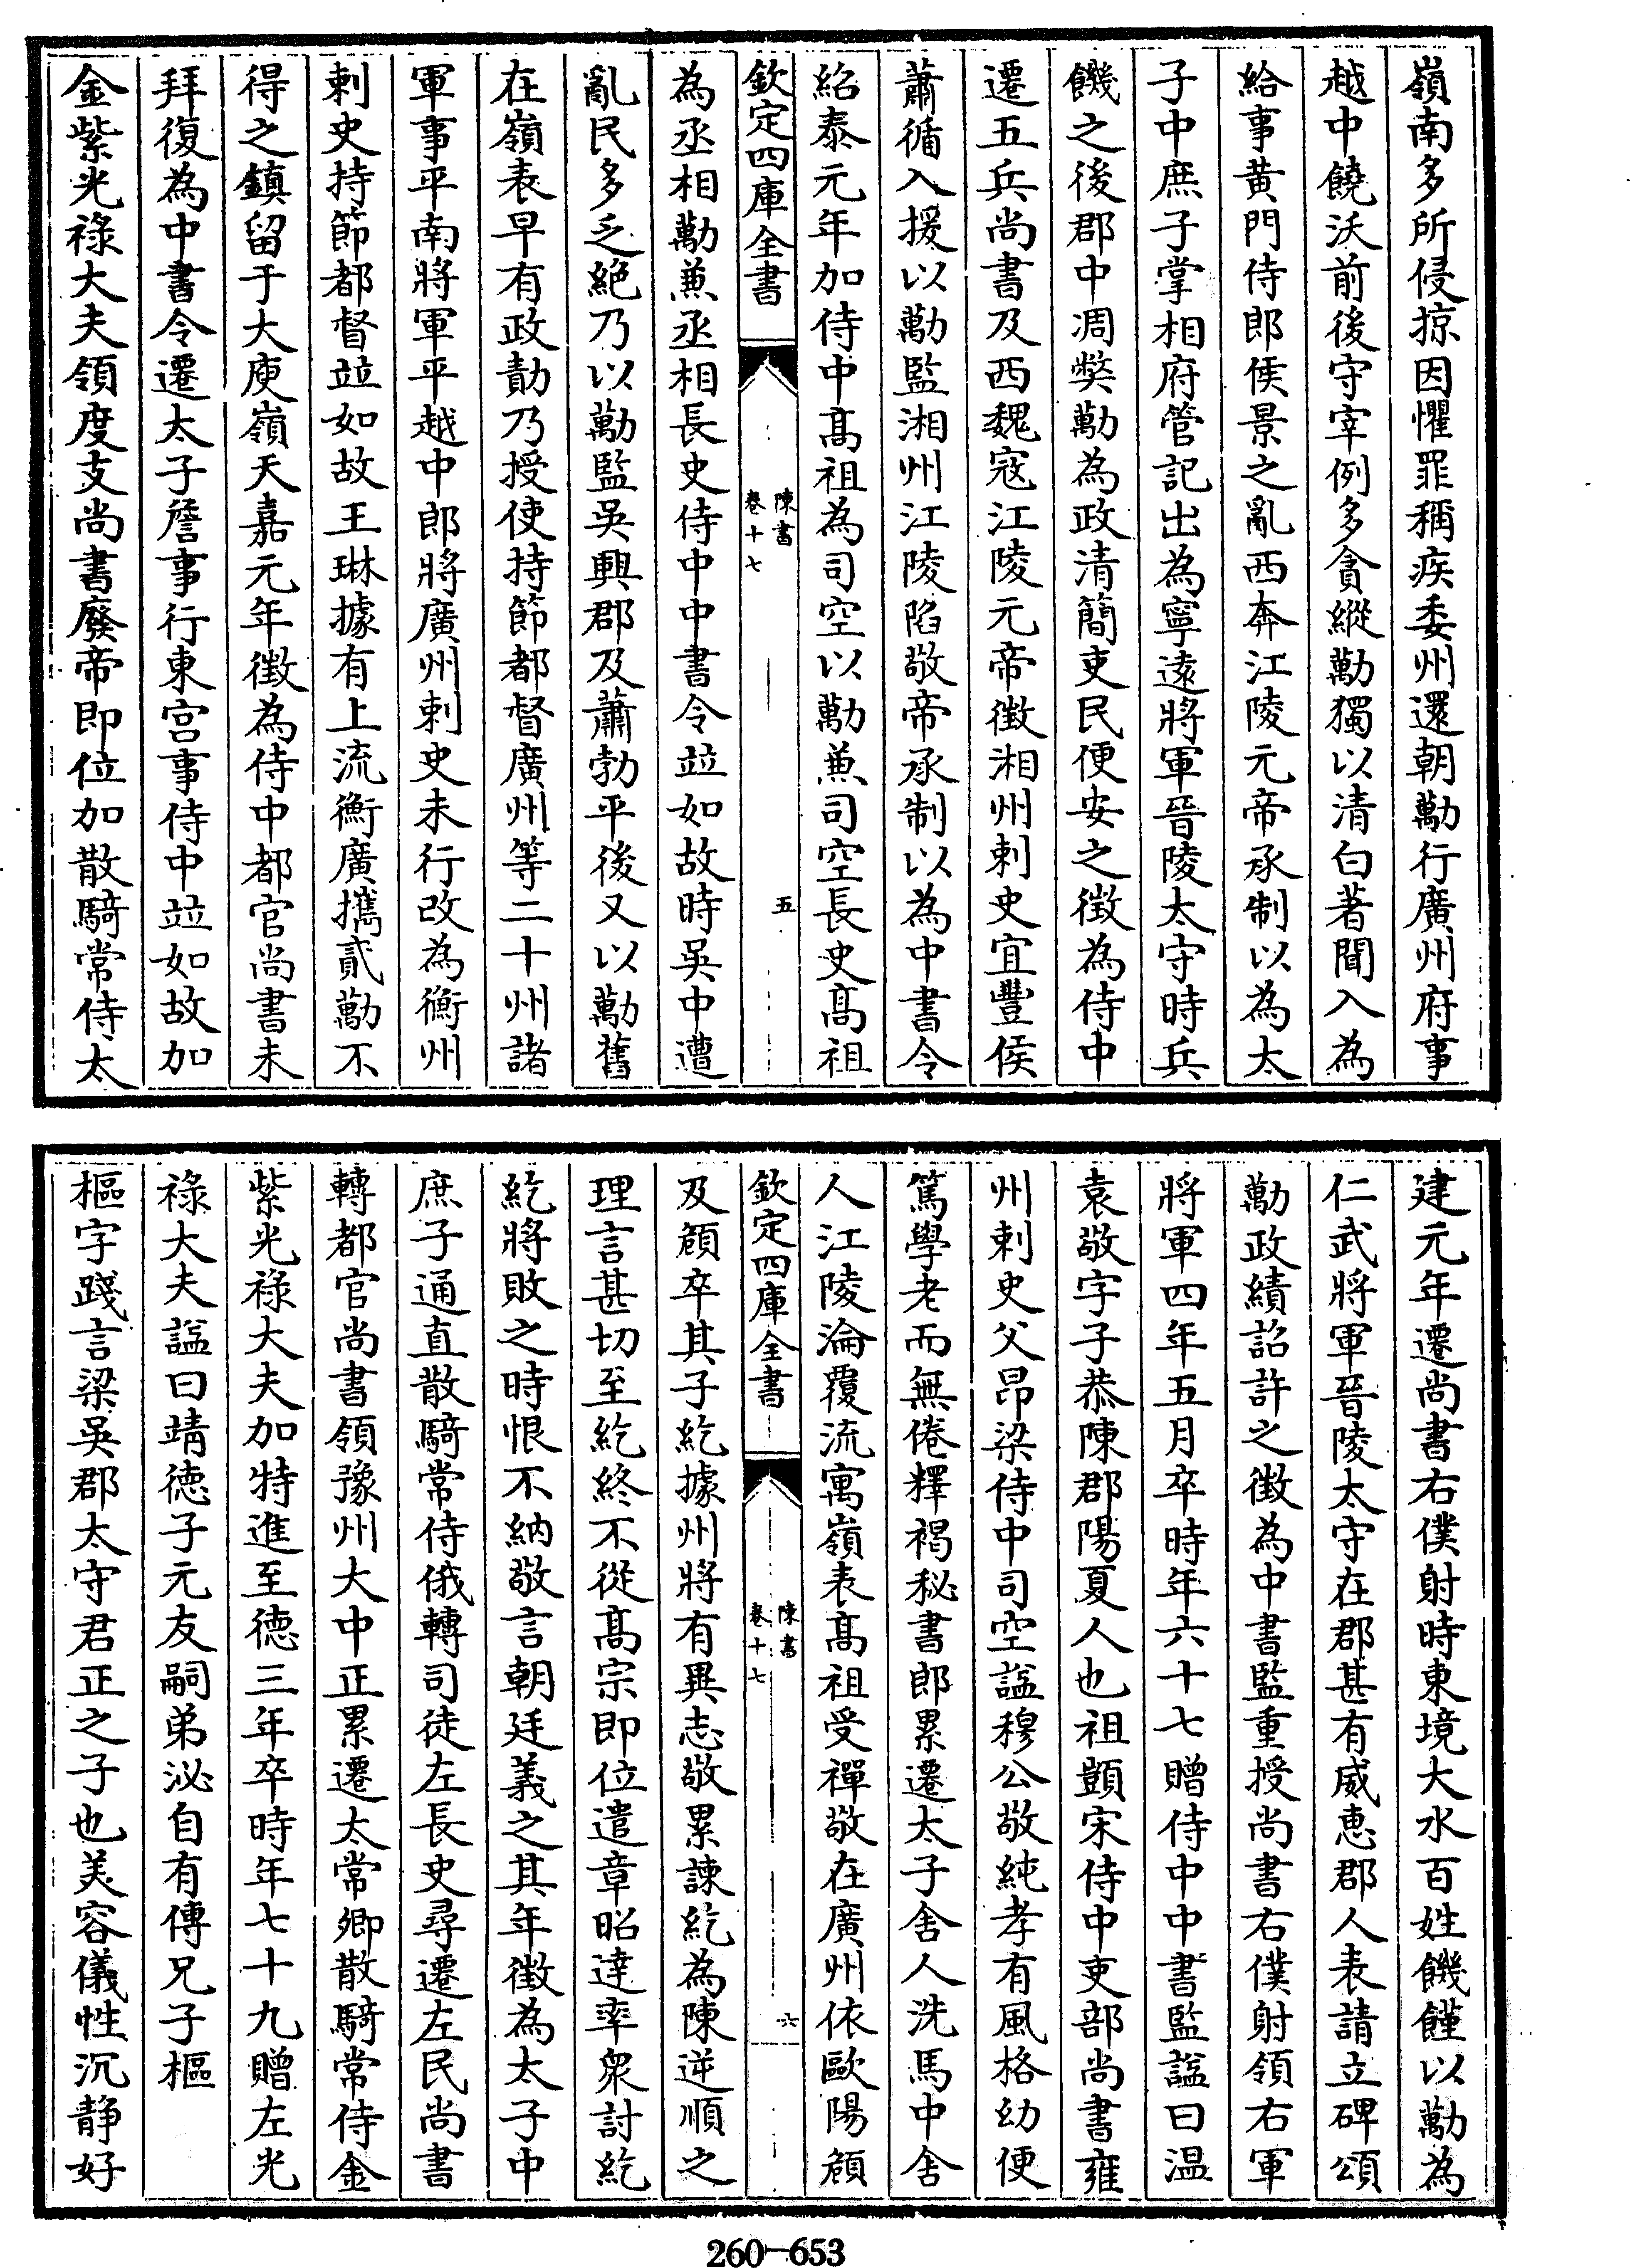 嶺南多所侵掠因懼罪稱疾委州還朝勱行廣州府事
越中饒沃前後守宰例多貪縱勱獨以清白著聞入為
給事黄門侍郎侯景之亂西奔江陵元帝承制以為太
子中庶子掌相府管記出為寧遠將軍晉陵太守時兵
饑之後郡中凋弊勱為政清簡吏民便安之徴為侍中
遷五兵尚書及西魏寇江陵元帝徴湘州刺史宜豐侯
蕭循入援以勱監湘州江陵陷敬帝承制以為中書令
紹泰元年加侍中髙祖為司空以勱兼司空長史髙祖
欽定四庫全書
陳書
卷十七
五
為丞相勱兼丞相長史侍中中書令並如故時吳中遭
亂民多乏絶乃以勱監吳興郡及蕭勃平後又以勱舊
在嶺表早有政勣乃授使持節都督廣州等二十州諸
軍事平南將軍平越中郎將廣州刺史未行改為衡州
刺史持節都督並如故王琳據有上流衡廣攜貳勱不
得之鎮留于大庾嶺天嘉元年徴為侍中都官尚書未
拜復為中書令遷太子詹事行東宮事侍中並如故加
金紫光祿大夫領度支尚書廢帝即位加散騎常侍太
建元年遷尚書右僕射時東境大水百姓饑饉以勱為
仁武將軍晉陵太守在郡甚有威惠郡人表請立碑頌
勱政績詔許之徴為中書監重授尚書右僕射領右軍
將軍四年五月卒時年六十七贈侍中中書監諡曰温
袁敬字子恭陳郡陽夏人也祖顗宋侍中吏部尚書雍
州刺史父昂梁侍中司空諡穆公敬純孝有風格幼便
篤學老而無倦釋褐秘書郎累遷太子舍人洗馬中舍
人江陵淪覆流寓嶺表髙祖受禪敬在廣州依歐陽頠
欽定四庫全書
陳書
卷十七
六
及頠卒其子紇據州將有異志敬累諫紇為陳逆順之
理言甚切至紇終不從髙宗即位遣章昭達率衆討紇
紇將敗之時恨不納敬言朝廷義之其年徴為太子中
庶子通直散騎常侍俄轉司徒左長史尋遷左民尚書
轉都官尚書領豫州大中正累遷太常卿散騎常侍金
紫光祿大夫加特進至德三年卒時年七十九贈左光
祿大夫諡曰靖德子元友嗣弟泌自有傳兄子樞
樞字踐言梁吳郡太守君正之子也美容儀性沉静好
260-653